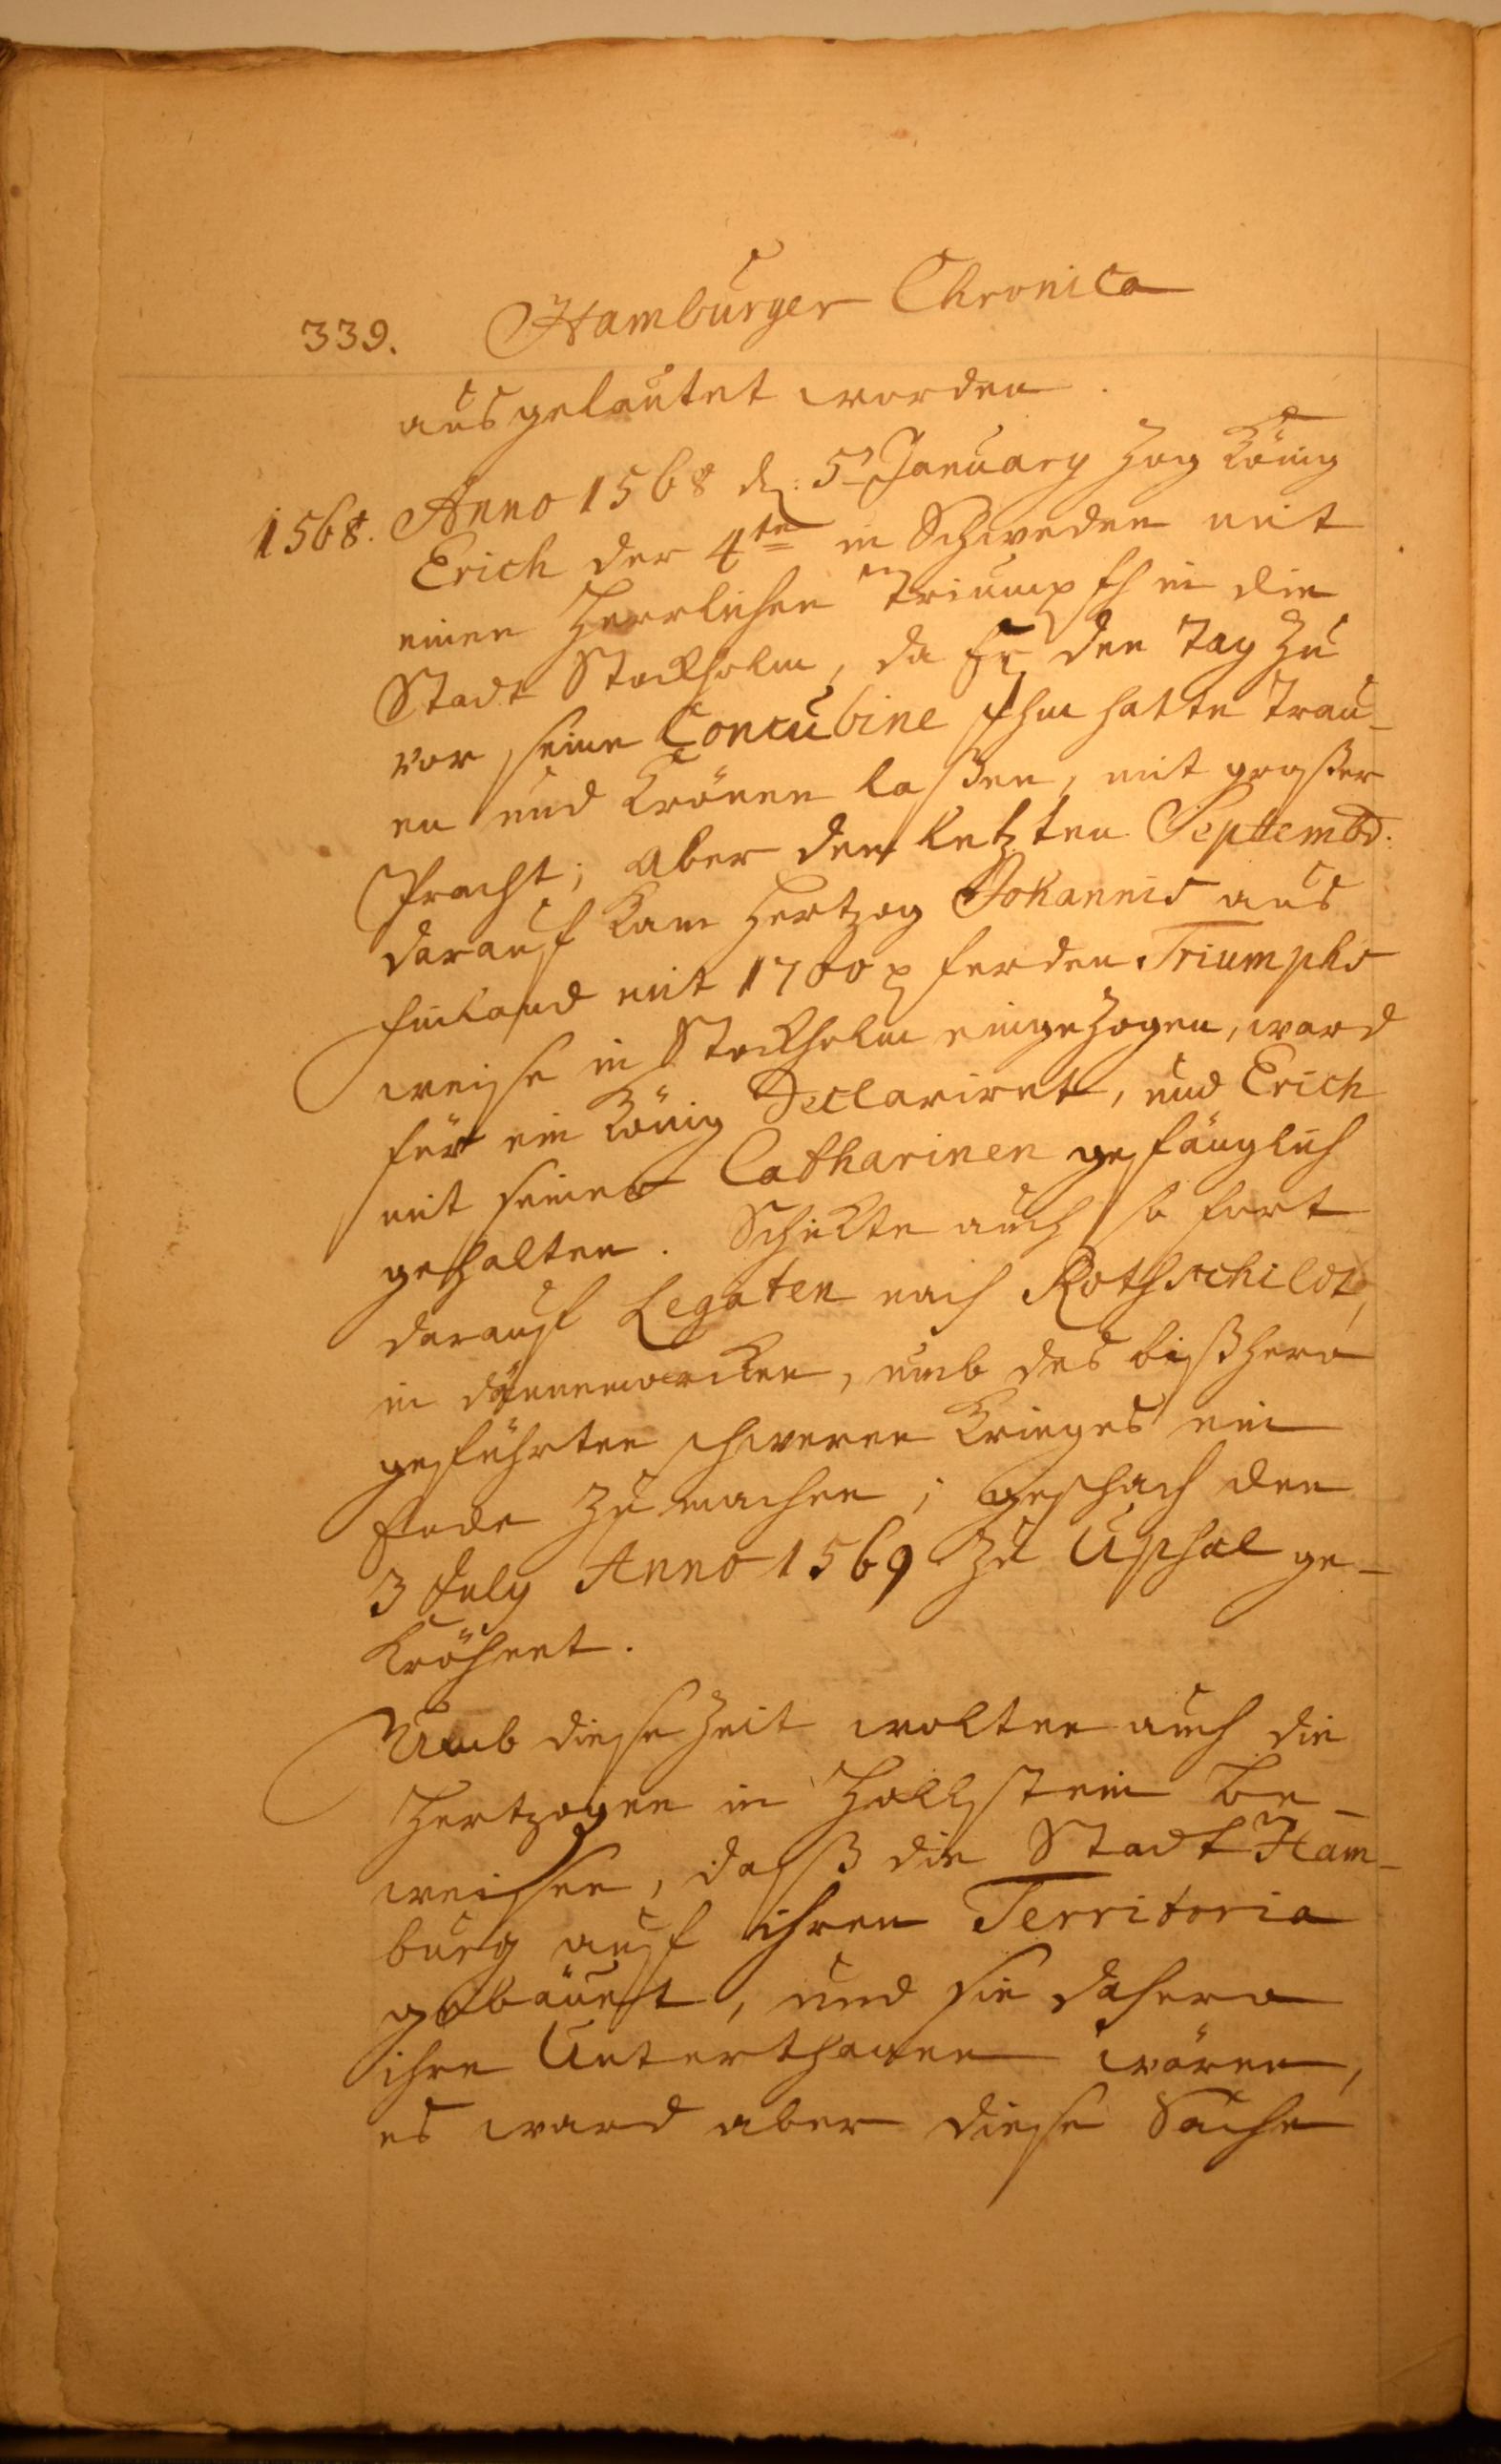 339. Hamburger Chronica
ausgelautet worden.
1568. Anno 1568 d. 5 January zog König
Erich der 4te in Schweden mit
einen Herrlichen Triumpfh in die
Stadt Stockholm, da Er den Tag zu
vor seine Concubine Ihm hatte Trau-
en und Krönen laßen, mit großer
Pracht; aber den letzten Septembr:
darauf kam Hertzog Johannis aus
Finland mit 1700 pferden Triumphs
weise in Stockholm eingezogen, ward
für ein König Declariret, und Erich
mit seiner Catharinen gefänglich
gehalten. Schickte auch so fort
darauf Legaten nach Rothschildt,
in Dännemarcken, umb des bißhero
geführten schweren Krieges ein
Ende zu machen; geschach den
3 July Anno 1569 zu Upsal ge-
kröhnet.
Umb diese Zeit wolten auch die
Hertzogen in Hollstein be-
weisen, daß die Stadt Ham-
burg auf ihren Territoria
gebäuet, und sie dahero
ihre Unterthanen wären,
es ward aber diese Sache